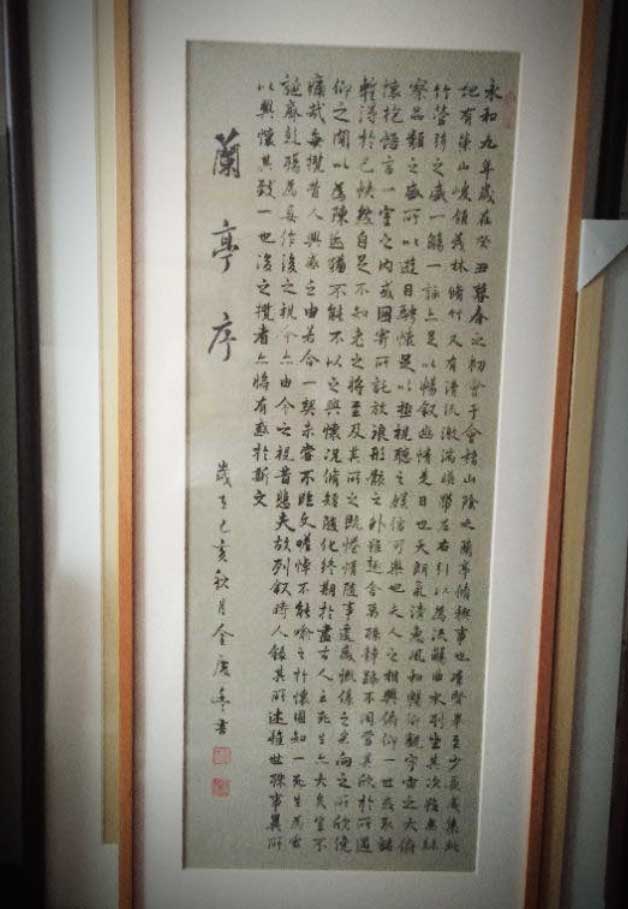 永和九年歲在癸丑暮春之初會于會稽山陰之蘭亭脩禊事也群賢畢至少長咸集此
地有崇山峻領茂林脩竹又有清流激湍暎帶左右引以為流觴曲水列坐其次雖無絲
竹管弦之盛一觴一詠亦足以暢叙幽情是日也天朗氣清惠風和暢仰觀宇宙之大俯
察品類之盛所以遊目騁懷足以極視聽之娛信可樂也夫人之相與俯仰一世或取諸
懷抱悟言一室之內或因寄所託放浪形骸之外雖趣舍萬殊靜躁不同當其欣於所遇
暫得於己怏然自足不知老之將至及其所之既惓情隨事遷感慨係之矣向之所欣俛
仰之間以為陳迹猶不能不以之興懷況脩短隨化終期於盡古人云死生亦大矣豈不
痛哉每攬昔人興感之由若合一契未嘗不臨文嗟悼不能喻之於懷固知一死生為虛
誕齊彭殤為妄作後之視今亦由今之視昔悲夫故列叙時人錄其所述雖世殊事異所
以興懷其致一也後之攬者亦將有感於斯文
蘭亭序
歲在己亥秋月金慶書